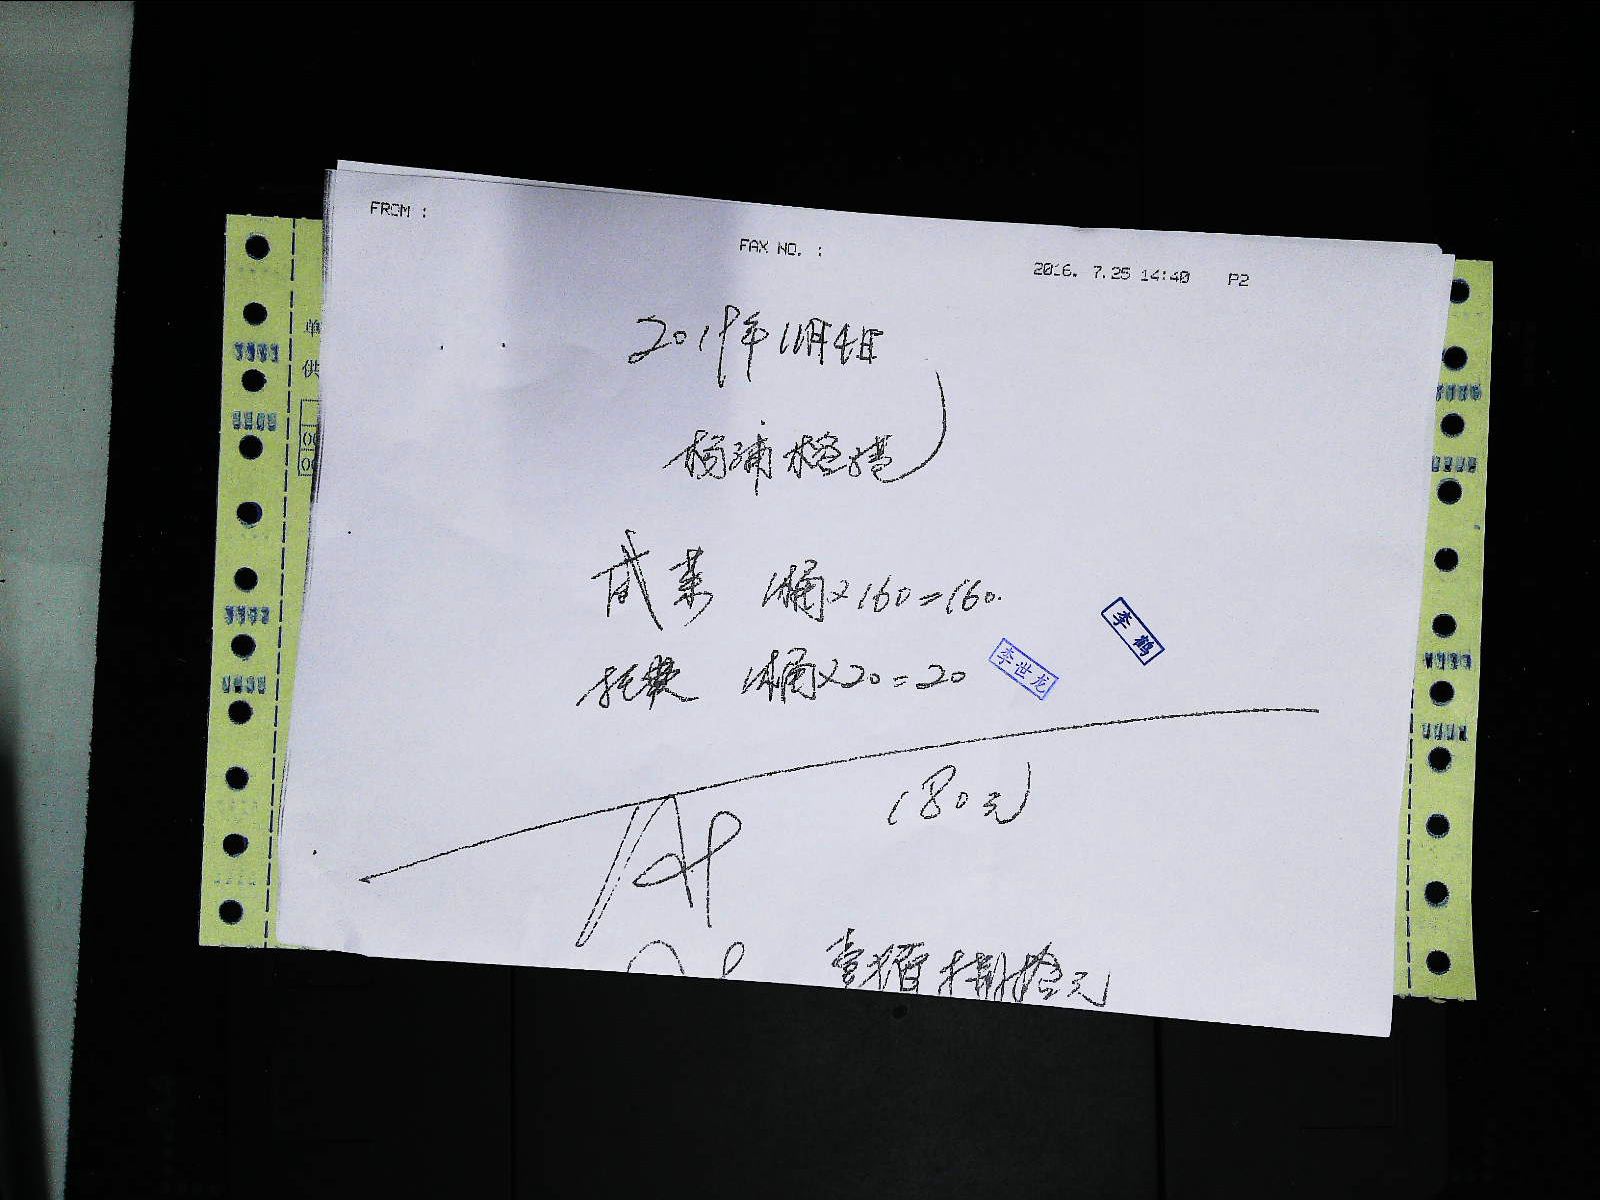 FROM :
FAX NO. :
2016. 7.25 14:40 P2
单
供
2019年11月4日
杨浦
咸菜 1桶×160=160.
托费 1桶×20=20
李鹤
李世龙
180元
壹佰捌拾元